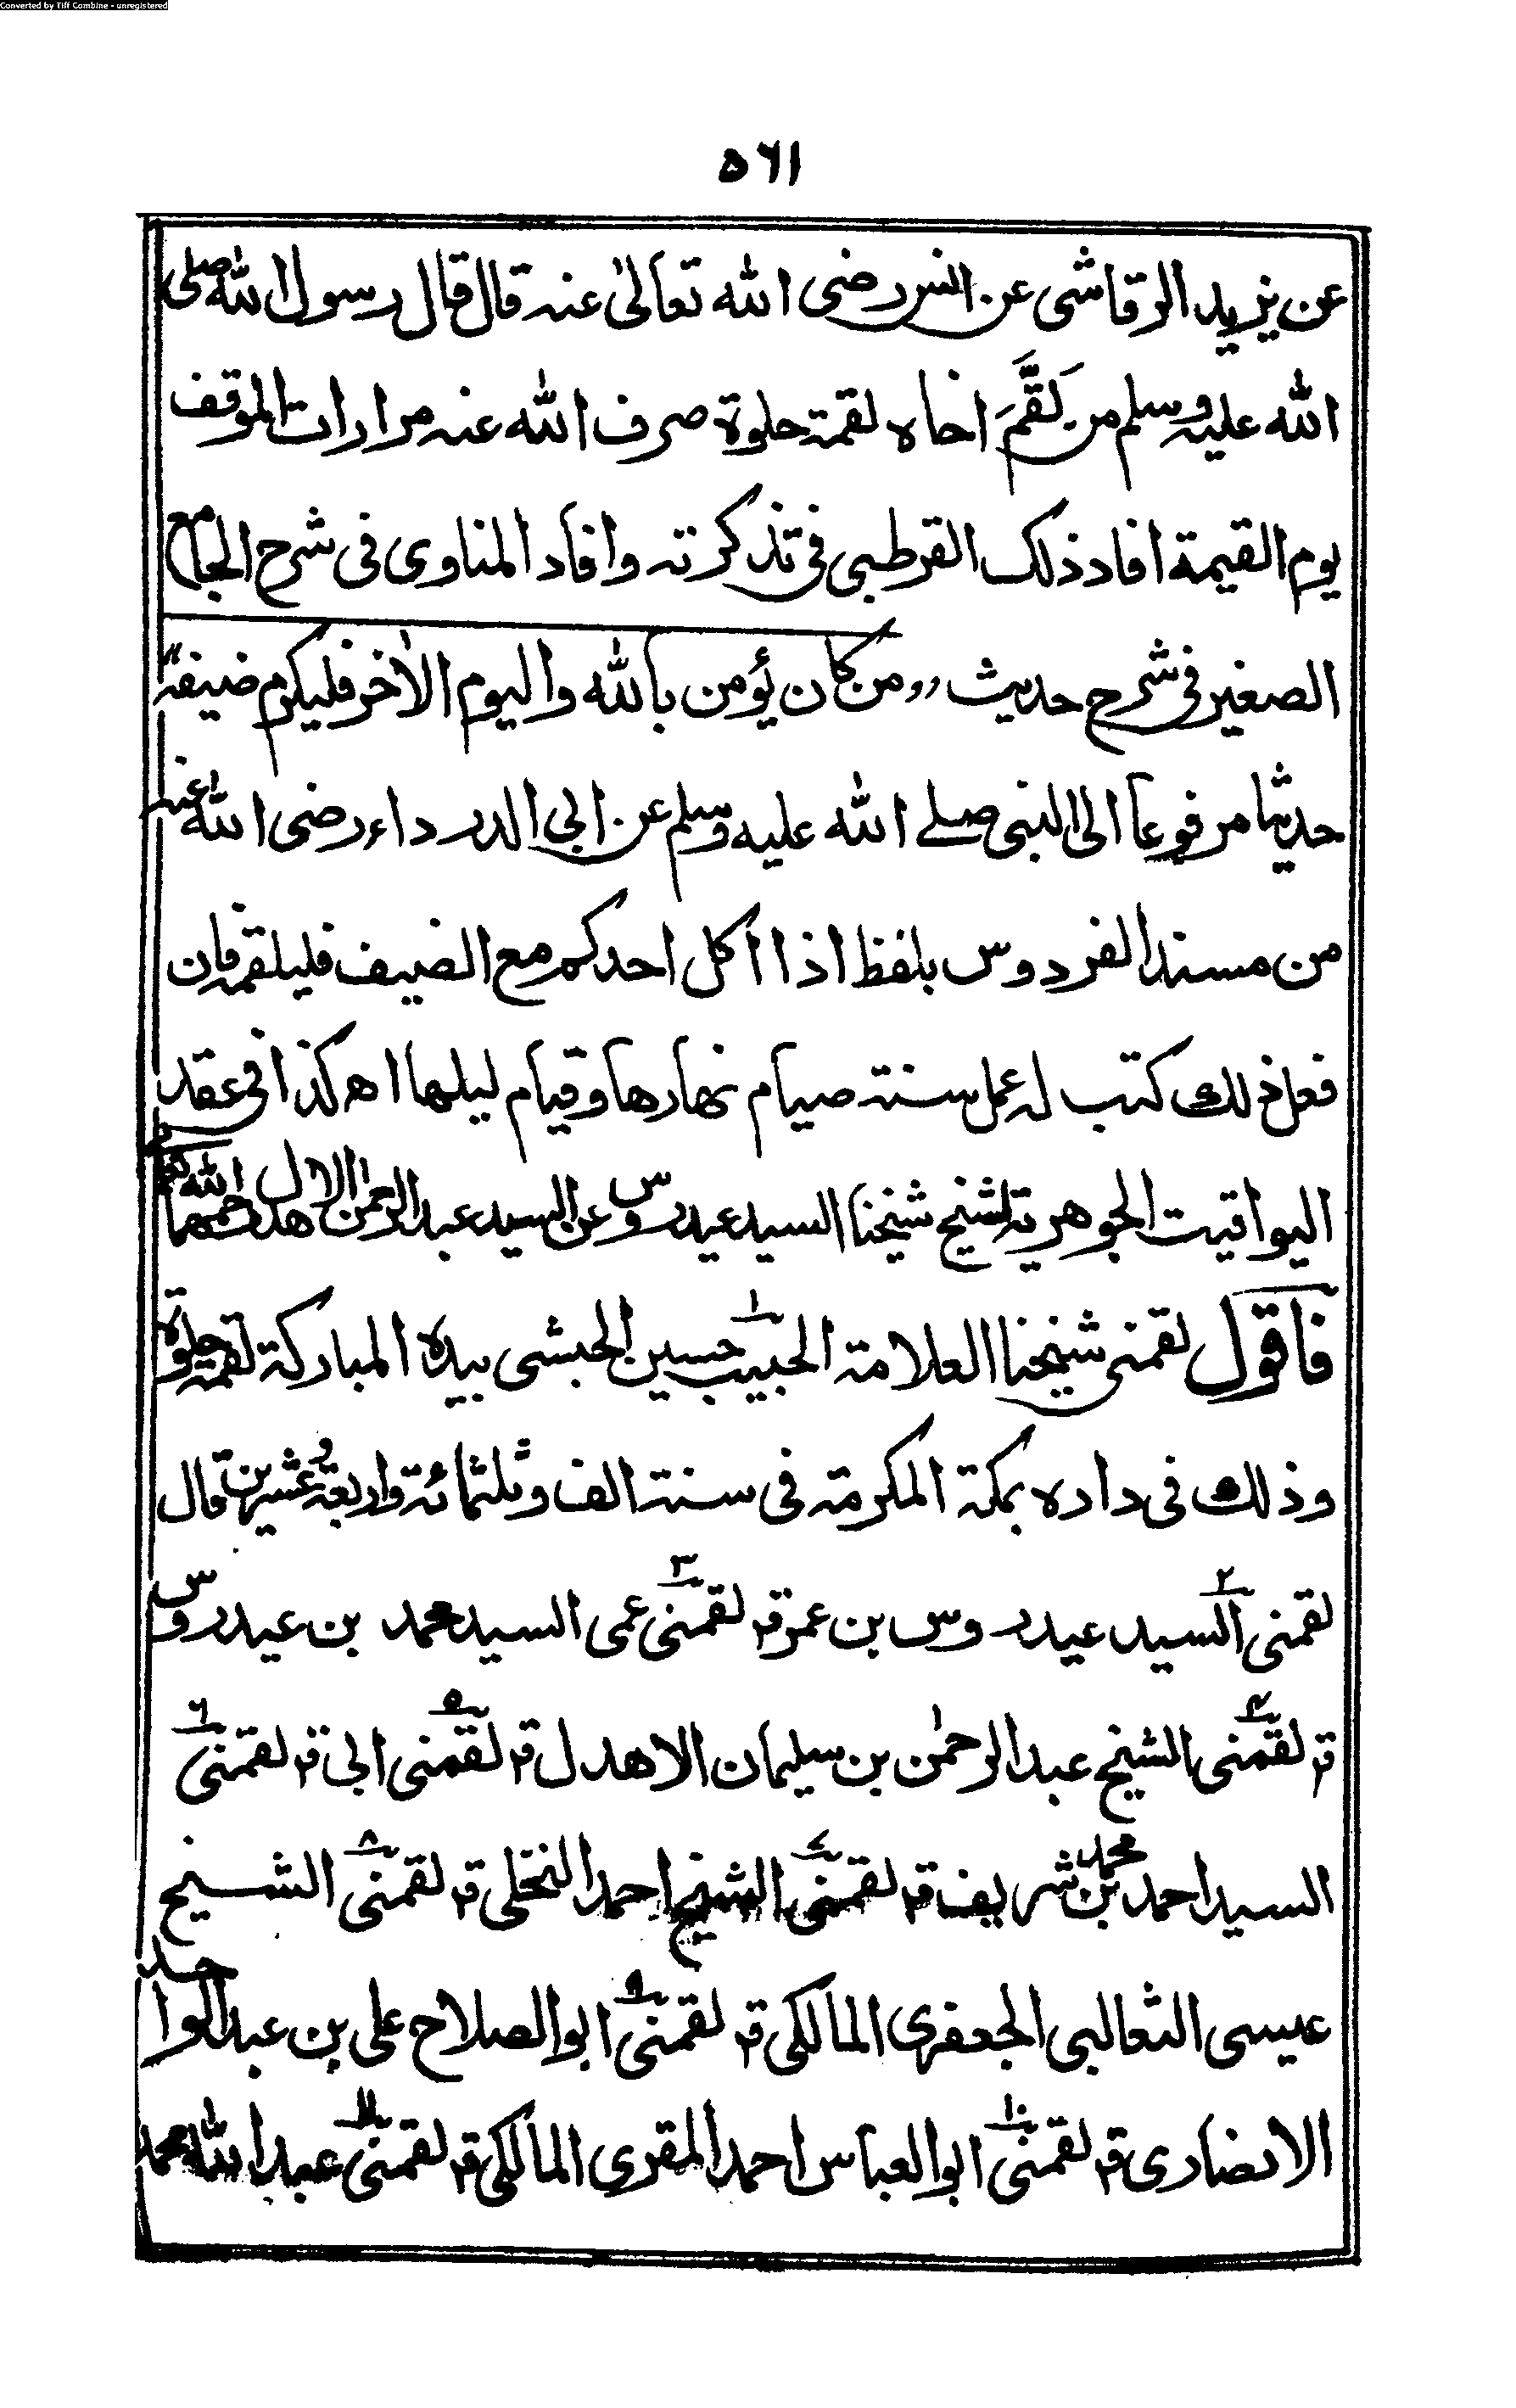 Converted by Tiff Combine - unregistered
٥٦١
عن يزيد الرقاشى عن انس رضى الله تعالىٰ عنه قال قال رسول الله صلى
الله عليه وسلم من لَقَّمَ اخاه لقمة حلوة صرف الله عنه مرارات الموقف
يوم القيمة افاد ذلك القرطبى فى تذكرته وافاد المناوى فى شرح الجامع
الصغير فى شرح حديث ,,من كان يؤمن بالله واليوم الاٰخر فليكرم ضيفه"
حديثا مرفوعا الى النبى صلے الله عليه وسلم عن ابى الدرداء رضى الله عنه
من مسند الفردوس بلفظ اذا اكل احدكم مع الضيف فليلقمه فان
فعل ذلك كتب له عمل سنة صيام نهارها وقيام ليلها اه كذا فى عقد
اليواقيت الجوهرية لشيخ شيخنا السيد عيدروس عن السيد عبدالرحمٰن الاهدل رحمهما الله
فاقول لقمنى شيخنا العلامة الحبيب ١ حسين الحبشى بيده المباركة لقمة حلوة
وذلك فى داره بمكة المكرمة فى سنة الف وثلثمائة واربعة وعشرين قال
لقمنى ٢ السيد عيدروس بن عمر قر لقمنى ٣ عمى السيد محمد بن عيدروس
قر لقمنى ٤ الشيخ عبدالرحمٰن بن سليمان الاهدل قر لقمنى ٥ ابى قر لقمنى ٦
السيد احمد بن محمد شريف قر لقمنى ٧ الشيخ احمد النخلى قر لقمنى ٨ الشيخ
عيسى الثعالبى الجعفرى المالكى قر لقمنى ٩ ابوالصلاح على بن عبدالواحد
الانصارى قر لقمنى ١٠ ابوالعباس احمد المقرى المالكى قر لقمنى ١١ عبدالله محمد